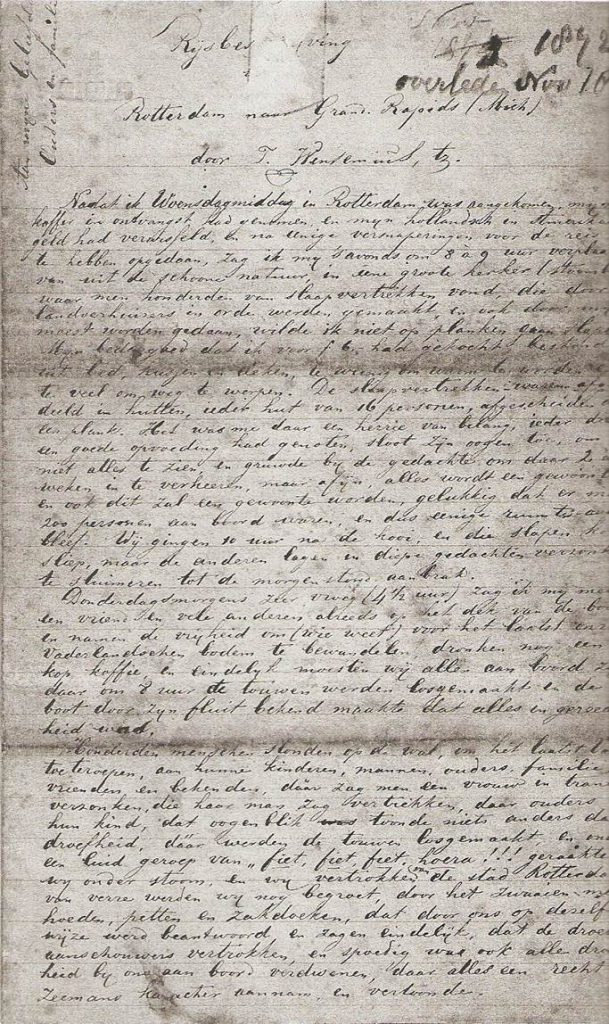 Aan mijne Geliefde
Ouders en familie
1892
overleden Nov
Rijsbes ving
Rotterdam naar Grand. Rapids (Mich)
door T. tz.
Nadat ik Woensdagmiddag in Rotterdam was aangekomen, myn
koffer in ontvangst had genomen, en myn hollandsch in Amerik
geld had verwisseld, en na eenige versnaperingen voor de reis
te hebben opgedaan, zag ik my 's avonds om 8 a 9 uur verplaa
van uit de schoone natuur in eene groote kerker (stoomb
waar men honderden van slaapvertrekken vond die door
landverhuizers in orde werden gemaakt, en ook door my
moest worden gedaan, wilde ik niet op planken gaan slaap
Myn beddegoed dat ik voor f 6, had gekocht bestond
uit bed, kussen en deken, te weinig om warm te worden en
te veel om weg te werpen. De slaapvertrekken waren afge
deeld in hutten, ieder hut van 16 personen, afgescheiden
een plank. Het was me daar een herrie van belang, ieder die
een goede opvoeding had genoten, sloot zijn oogen toe, om
niet alles te zien, en gruwde by de gedachte om daar 2 a
weken in te verkeeren, maar afijn, alles wordt een gewoont
en ook dit zal een gewoonte worden, gelukkig dat er m
200 personen aan boord waren, en dus eenige ruimte
bleef. Wy gingen 10 uur na de kooi, en die slapen k
sliep, maar de anderen lagen in diepe gedachten verzonk
te sluimeren tot de morgenstond aanbrak.
Donderdagsmorgens zeer vroeg (4½ uur) zag ik my me
een vriend en vele anderen alreeds op het dak van de bo
en namen de vrijheid om (wie weet) voor het laatst onz
Vaderlandschen bodem te bewandelen, dronken nog een
kop koffie, en eindelijk moesten wij allen aan boord z
daar om 8 uur de touwen werden losgemaakt en de
boot door zyn fluit bekend maakte dat alles in gereed
heid was.
Honderden menschen stonden op de wal, om het laatst
toeteroepen, aan hunne kinderen, mannen, ouders, familie
vrienden, en bekenden, dáár zag men een vrouw in tran
verzonken, die haar man zag vertrekken, daar ouders
hun kind, dat oogenblik was toonde niets anders da
droefheid, dáár werden de touwen losgemaakt en on
een luid geroep van „fiet, fiet, fiet, hoera!!! geraakte
wy onder stoom, en wy vertrokken van de stad Rotterda
van verre werden wy nog begroet, door het zwaaien m
hoeden, petten en zakdoeken, dat door ons op dezelf
wijze werd beantwoord en zagen eindelijk, dat de droe
aanschouwers vertrokken, en spoedig was ook allen dro
heid by ons aan boord verdwenen, daar alles een recht
Zeemans karakter aannam, en vertoonde.